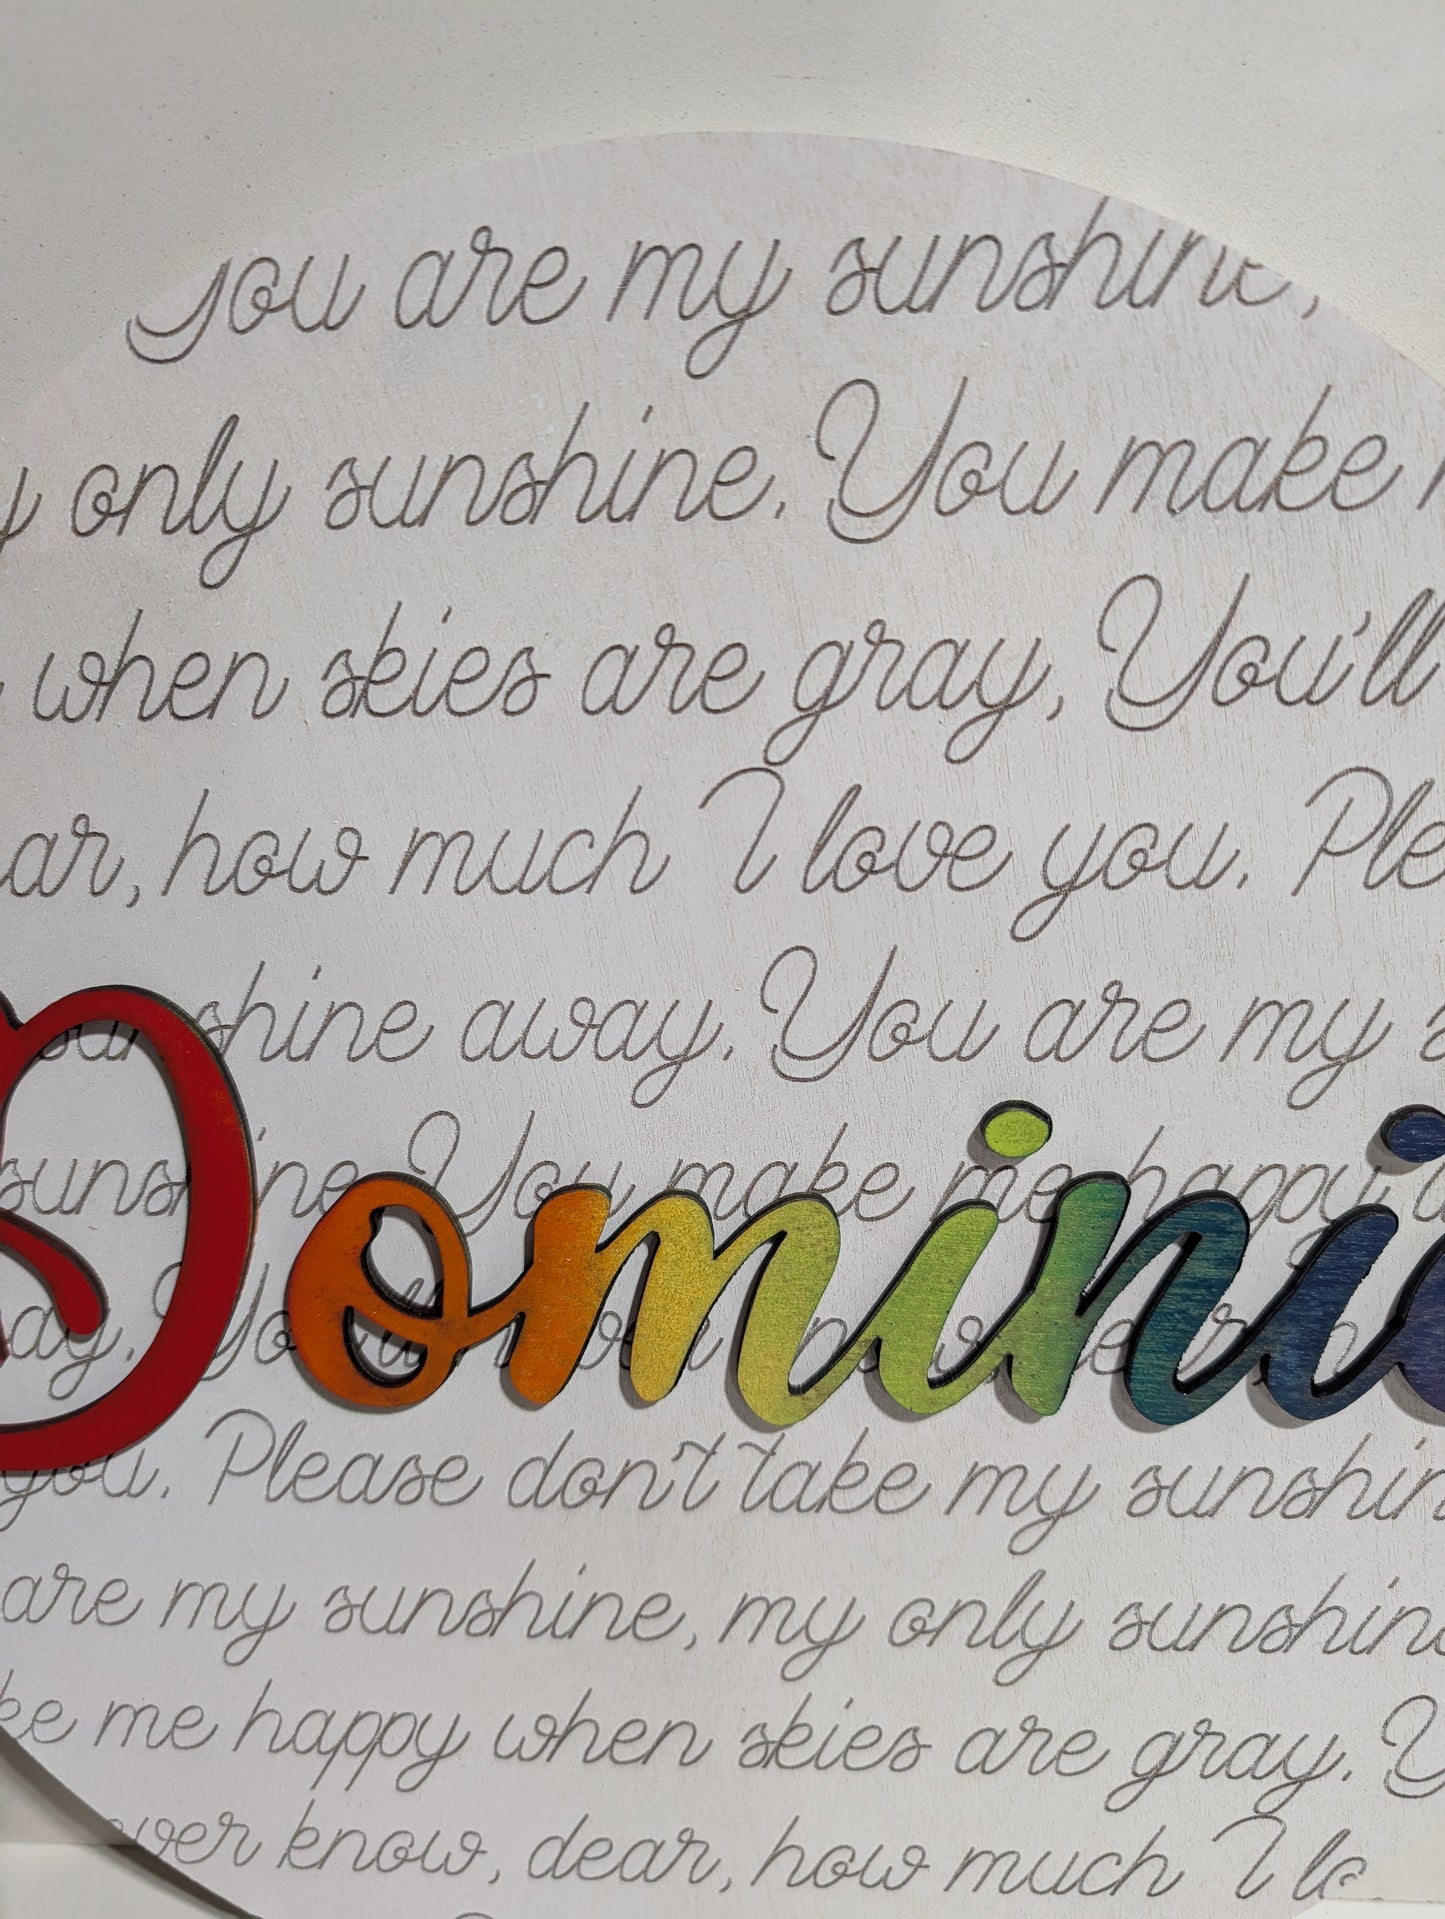 You are my sunshine,
only sunshine. You make
when skies are gray, You'll
how much I love you.
sunshine away. You are my
sunshine. You make me happy
Domini
you. Please don't take my sunshin
are my sunshine, my only sunshine
me happy when skies are gray.
know, dear, how much I lo